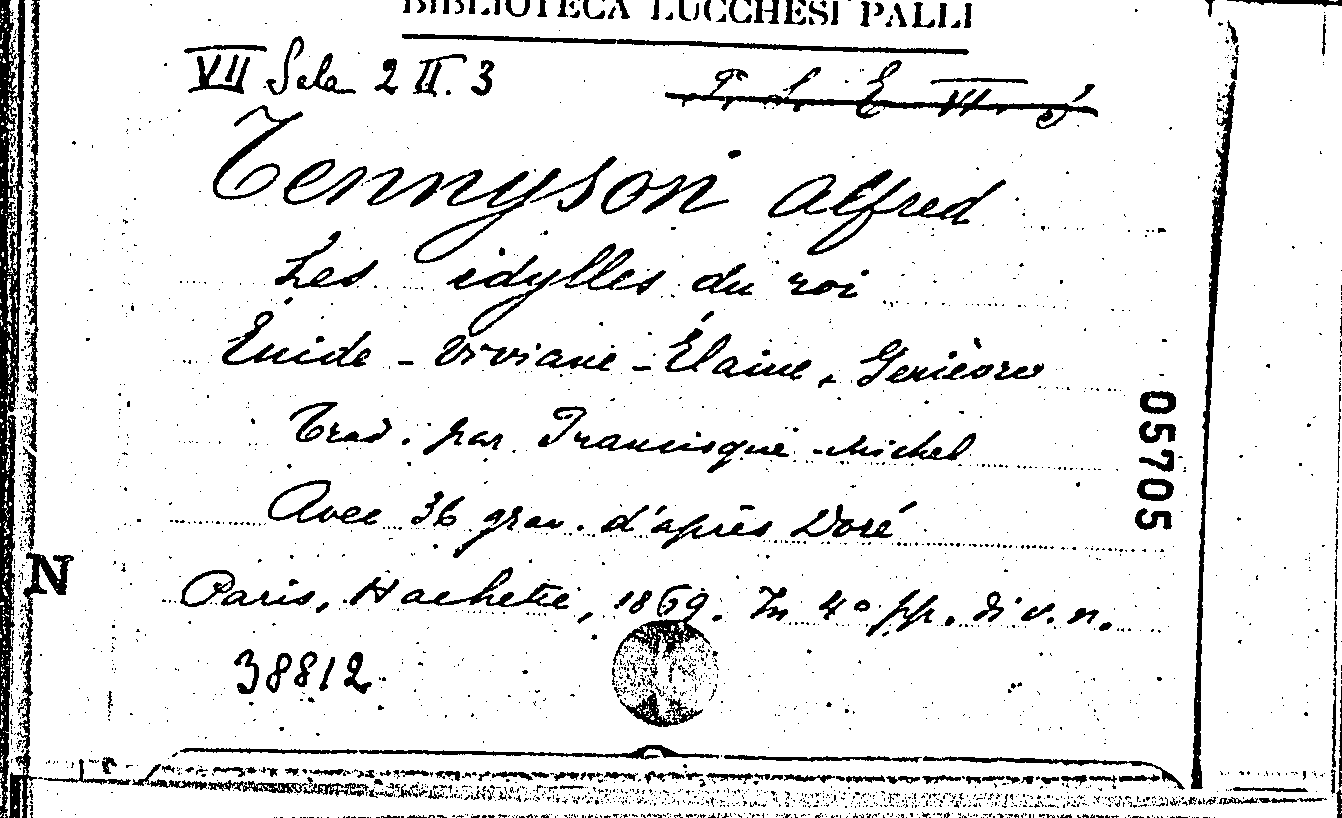 BIBLIOTECA LUCCHESI PALLI
VII Sala 2 II. 3
T. L. E VI. 5
Tennyson Alfred
Les idylles du roi
Enide - Viviane - Élaine - Genièvre
Trad. par Francisque Michel
Avec 36 grav. d'après Doré
Paris, Hachette, 1869. In 4° pp. di v. n.
38812
05705
N